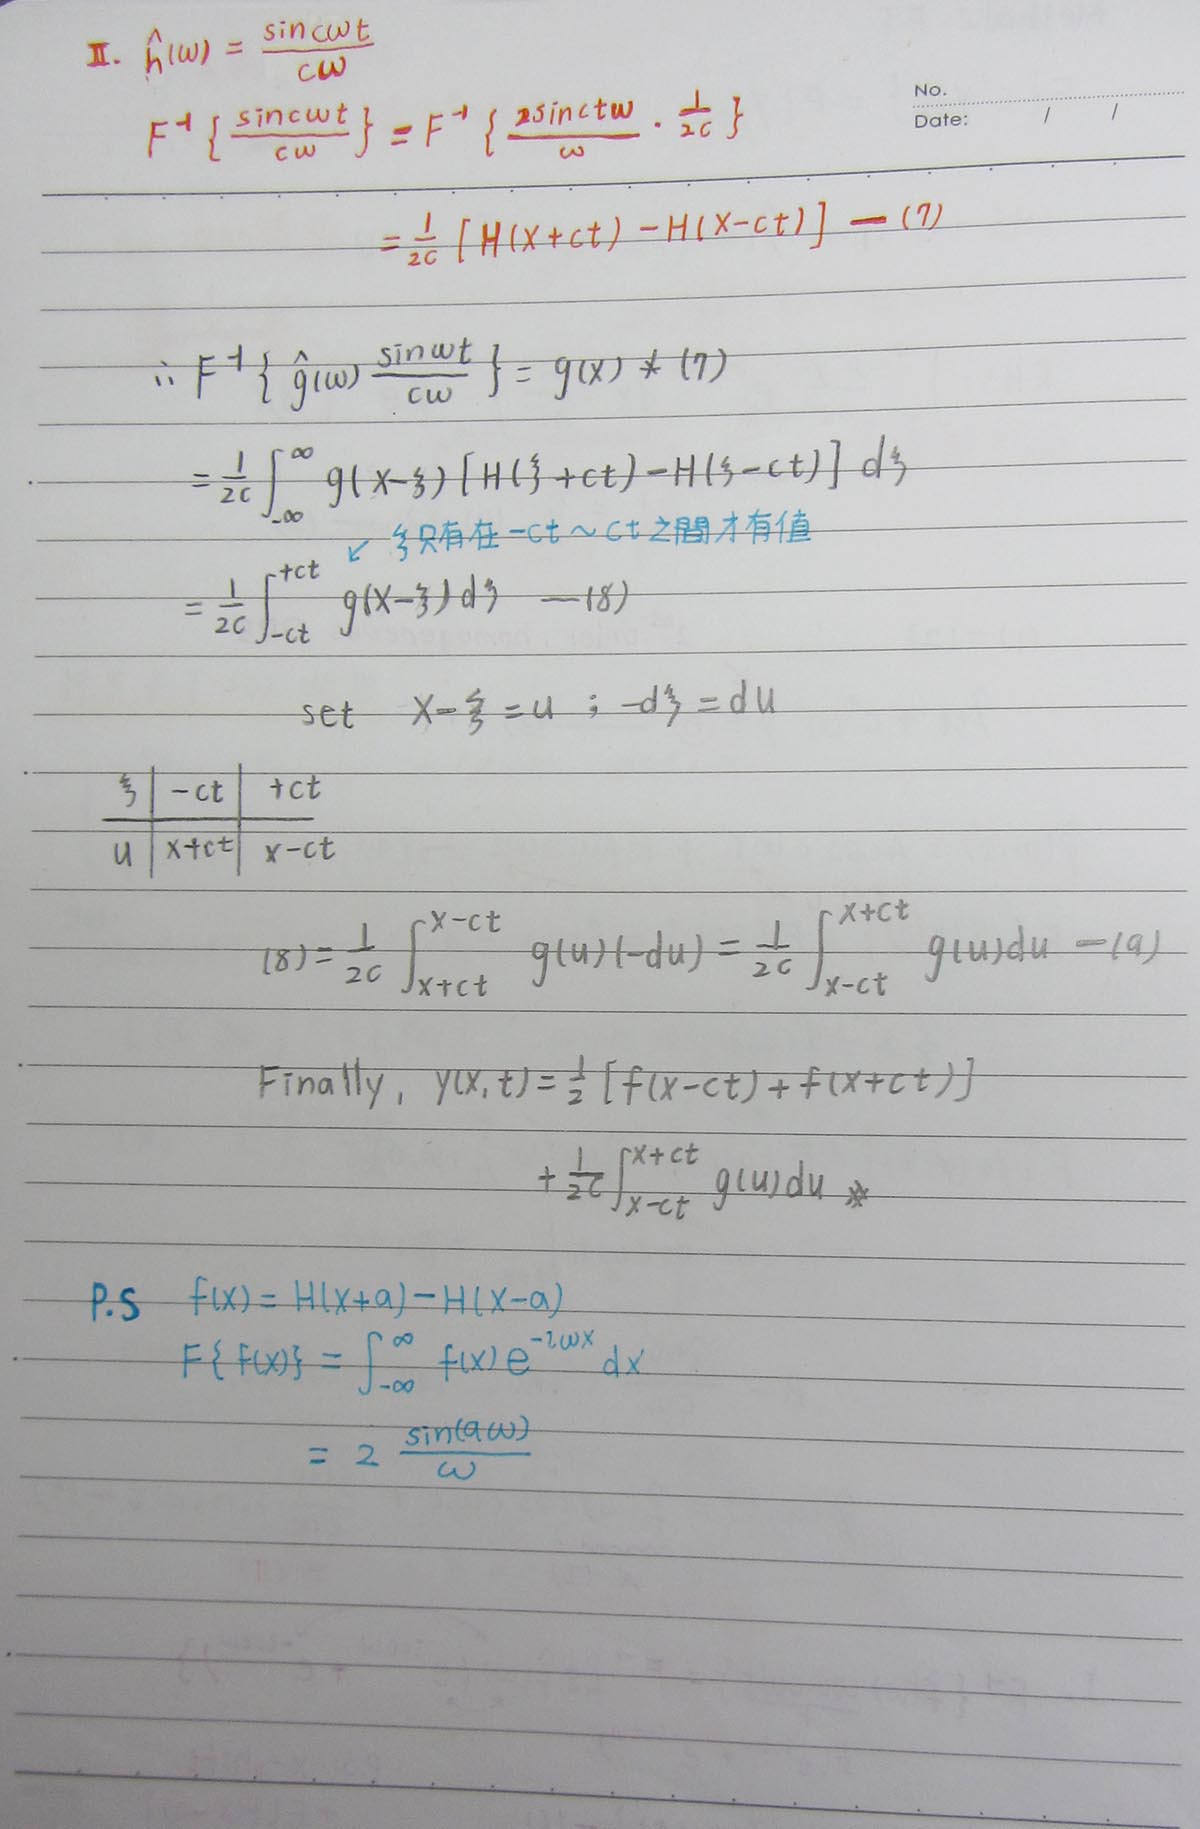 II. ĥ(ω) = sincωt / cω
No.
Date: / /
F⁻¹{ sincωt / cω } = F⁻¹{ 2sinctω / ω · 1/2c }
= 1/2c [H(x+ct) - H(x-ct)] — (7)
∴ F⁻¹{ ĝ(ω) sinωt / cω } = g(x) * (7)
= 1/2c ∫_-∞^∞ g(x-ξ) [H(ξ+ct) - H(ξ-ct)] dξ
↙ ξ只有在 -ct ~ ct 之間才有值
= 1/2c ∫_-ct^+ct g(x-ξ)dξ — (8)
set x-ξ = u ; -dξ = du
ξ | -ct | +ct
u | x+ct | x-ct
(8) = 1/2c ∫_x+ct^x-ct g(u)(-du) = 1/2c ∫_x-ct^x+ct g(u)du — (9)
Finally, y(x,t) = 1/2 [f(x-ct) + f(x+ct)]
+ 1/2c ∫_x-ct^x+ct g(u)du ※
P.S f(x) = H(x+a) - H(x-a)
F{f(x)} = ∫_-∞^∞ f(x) e^-iωx dx
= 2 sin(aω) / ω